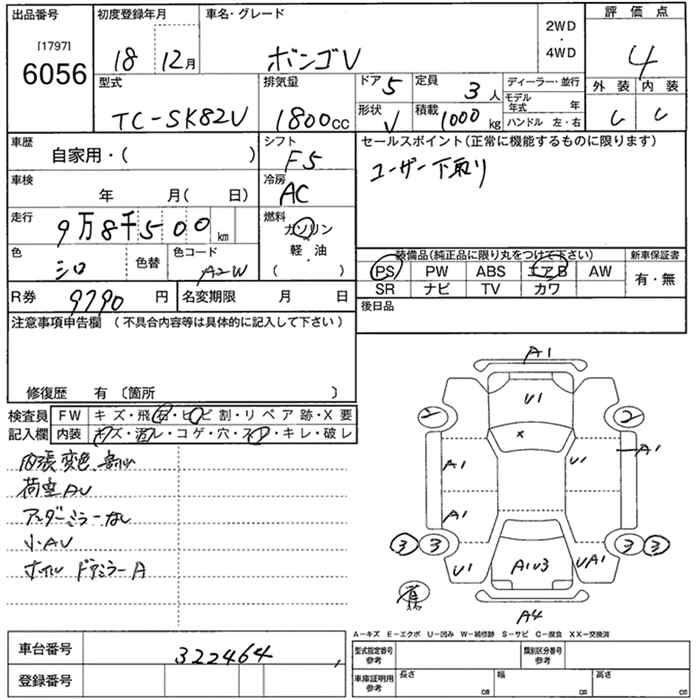 出品番号 初度登録年月 車名・グレード 2WD・4WD 評価点
[1797]
6056 18 12月 ボンゴV 4
型式 排気量 ドア 5 定員 3人 ディーラー・並行 外装 内装
TC-SK82V 1800cc 形状 V 積載 1000kg モデル年式 年 C C
ハンドル 左・右
車歴 シフト セールスポイント(正常に機能するものに限ります)
自家用・( ) F5 ユーザー下取り
車検 冷房
年 月( 日) AC
走行 燃料
9万8千500km ガソリン
色 色替 色コード 軽・油 装備品(純正品に限り丸をつけて下さい) 新車保証書
シロ A2W ( ) PS PW ABS エアB AW 有・無
SR ナビ TV カワ
R券 9790円 名変期限 月 日 後日品
注意事項申告欄 (不具合内容等は具体的に記入して下さい)
修復歴 有 〔箇所 〕
検査員 FW キズ・飛石・ヒビ割・リペア跡・X要
記入欄 内装 キズ・汚レ・コゲ・穴・スレ・キレ・破レ
内張変色
荷室AU
アンダーミラーなし
小AU
ホイル ドアミラーA
A1
U1
2 2
x
A1 U1 A1
A1
3 3 3 3
U1 A1U3 UA1
A4
A-キズ E-エクボ U-凹み W-補修跡 S-サビ C-腐食 XX-交換済
車台番号 322464
型式指定番号 参考 類別区分番号 参考
登録番号
車庫証明用 参考 長さ cm 幅 cm 高さ cm